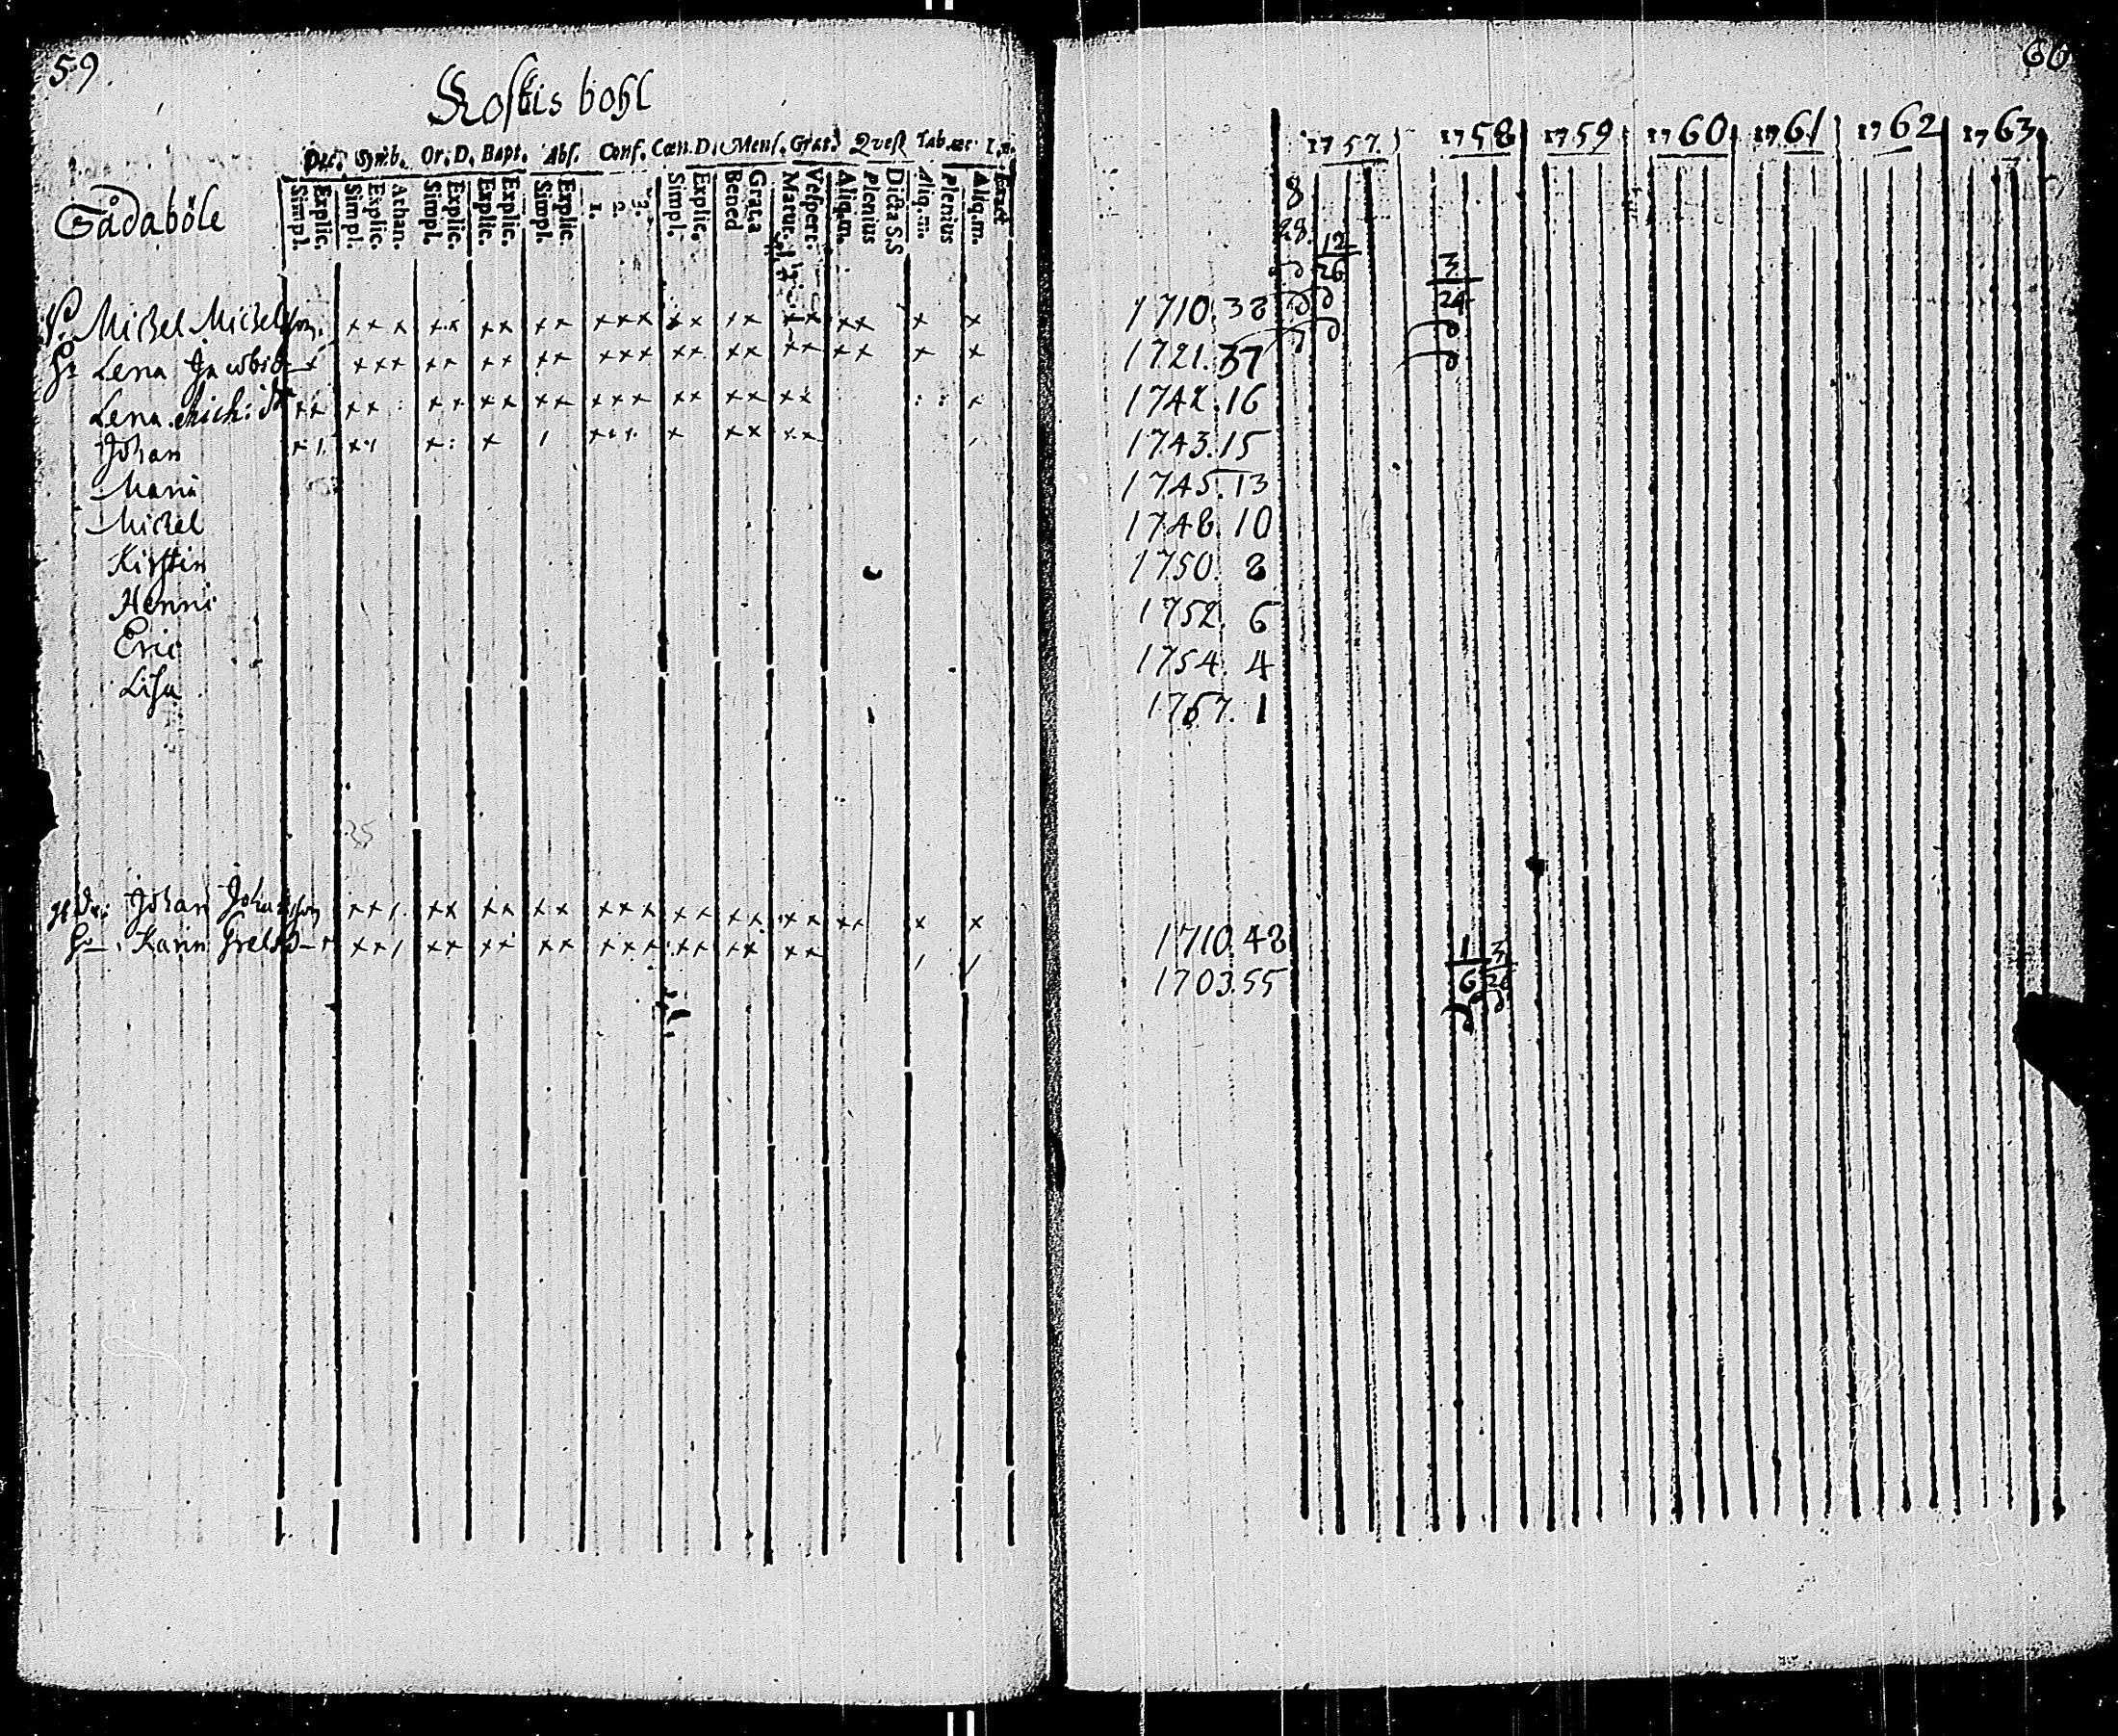 59
Roskis bohl
Dec. Symb. Or. D. Bapt. Abs. Conf. Cœn. D. Mens. Grat. Quest Tab. œc
Simpl. Explic. Simpl. Explic. Athan. Simpl. Explic. Explic. Explic. Simpl. Explic. 1. 2. 3. Simpl. Explic. Bened Grat.a Matut. Vespert. Aliq.m. Plenius Dicta S.S Aliq.m. Plenius Aliq.m. Exact
Gådaböle
Michel Michelsson. x x x x x x x x x x x x x x x x x x x x x x
Lena Jacobsd
Lena Mich: dr
Johan
Maria
Michel
Kirstin
Henric
Eric
Lisa
Johan Johansson
Karin Grelsd
60
1757. 1758 1759 1760 1761 1762 1763
8
28. 12/26 3/24
1710. 38
1721. 37
1742. 16
1743. 15
1745. 13
1748. 10
1750. 8
1752. 6
1754. 4
1757. 1
1710. 48
1703. 55 1/6